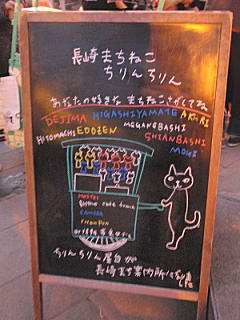 長崎まちねこ
ちりんちりん
あなたの好きな まちねこさがしてね
DEJIMA HIGASHIYAMATE AKARI
HITOMACHI EDOZEN MEGANEBASHI
CHIANBASHI
MOGI
HOSTEL
CAMERA
ちりんちりん屋台が
長崎まち案内所に